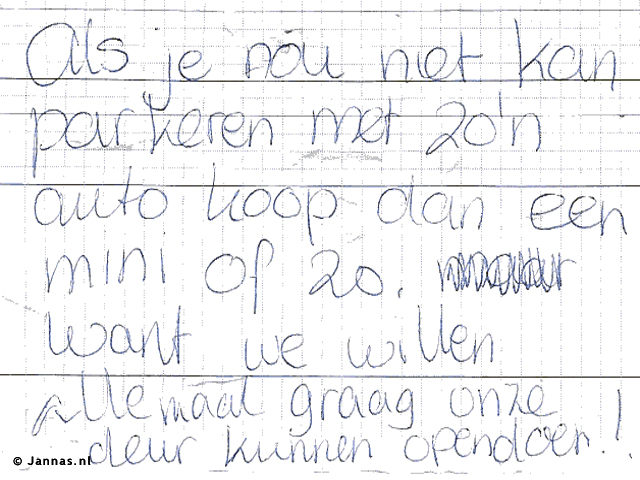 Als je nou niet kan
parkeren met zo'n
auto koop dan een
mini of zo.
want we willen
allemaal graag onze
deur kunnen opendoen!
© Jannas.nl